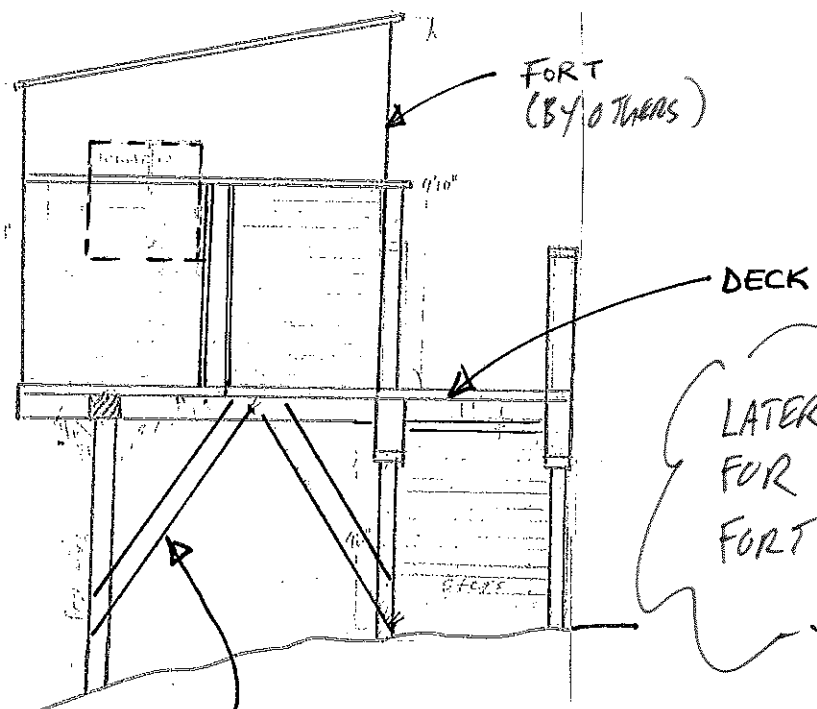 FORT
(BY OTHERS)
9'10"
DECK
LATER
FOR
FORT
STORE